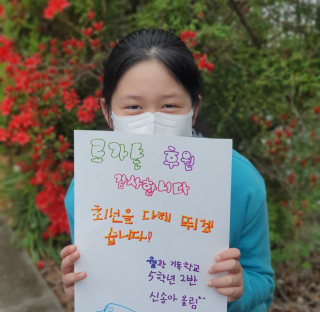 르가를 후원
감사합니다
최선을 다해 뛰겠
습니다!
월광 기독학교
5학년 2반
신송아 올림^^